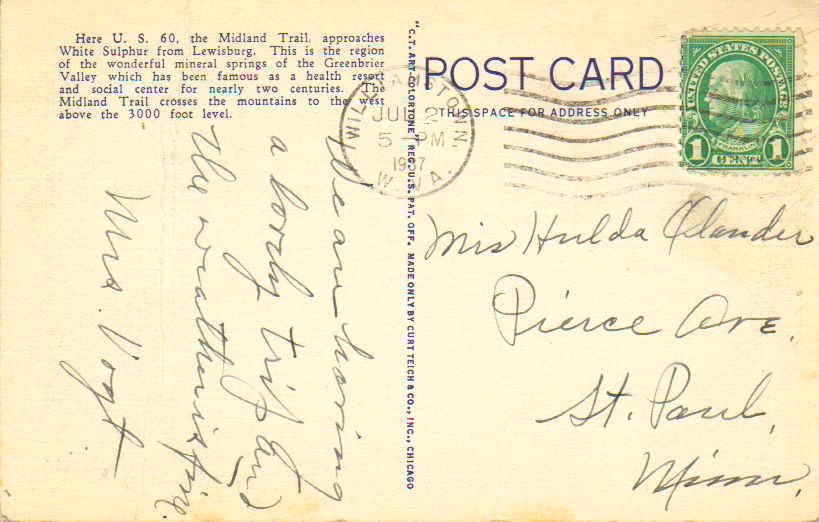 Here U. S. 60, the Midland Trail, approaches
White Sulphur from Lewisburg. This is the region
of the wonderful mineral springs of the Greenbrier
Valley which has been famous as a health resort
and social center for nearly two centuries. The
Midland Trail crosses the mountains to the west
above the 3000 foot level.
We are having
a lovely trip and
the weather is fine.
Mrs. Vogt
"C.T. ART-COLORTONE" REG. U.S. PAT. OFF. MADE ONLY BY CURT TEICH & CO., INC., CHICAGO
POST CARD
THIS SPACE FOR ADDRESS ONLY
WILLIAMSTOWN
JUL 2
5 - PM
1937
W. VA.
UNITED STATES POSTAGE
FRANKLIN
1 CENT 1
Mis Hulda Olander
Pierce Ave.
St. Paul,
Minn.